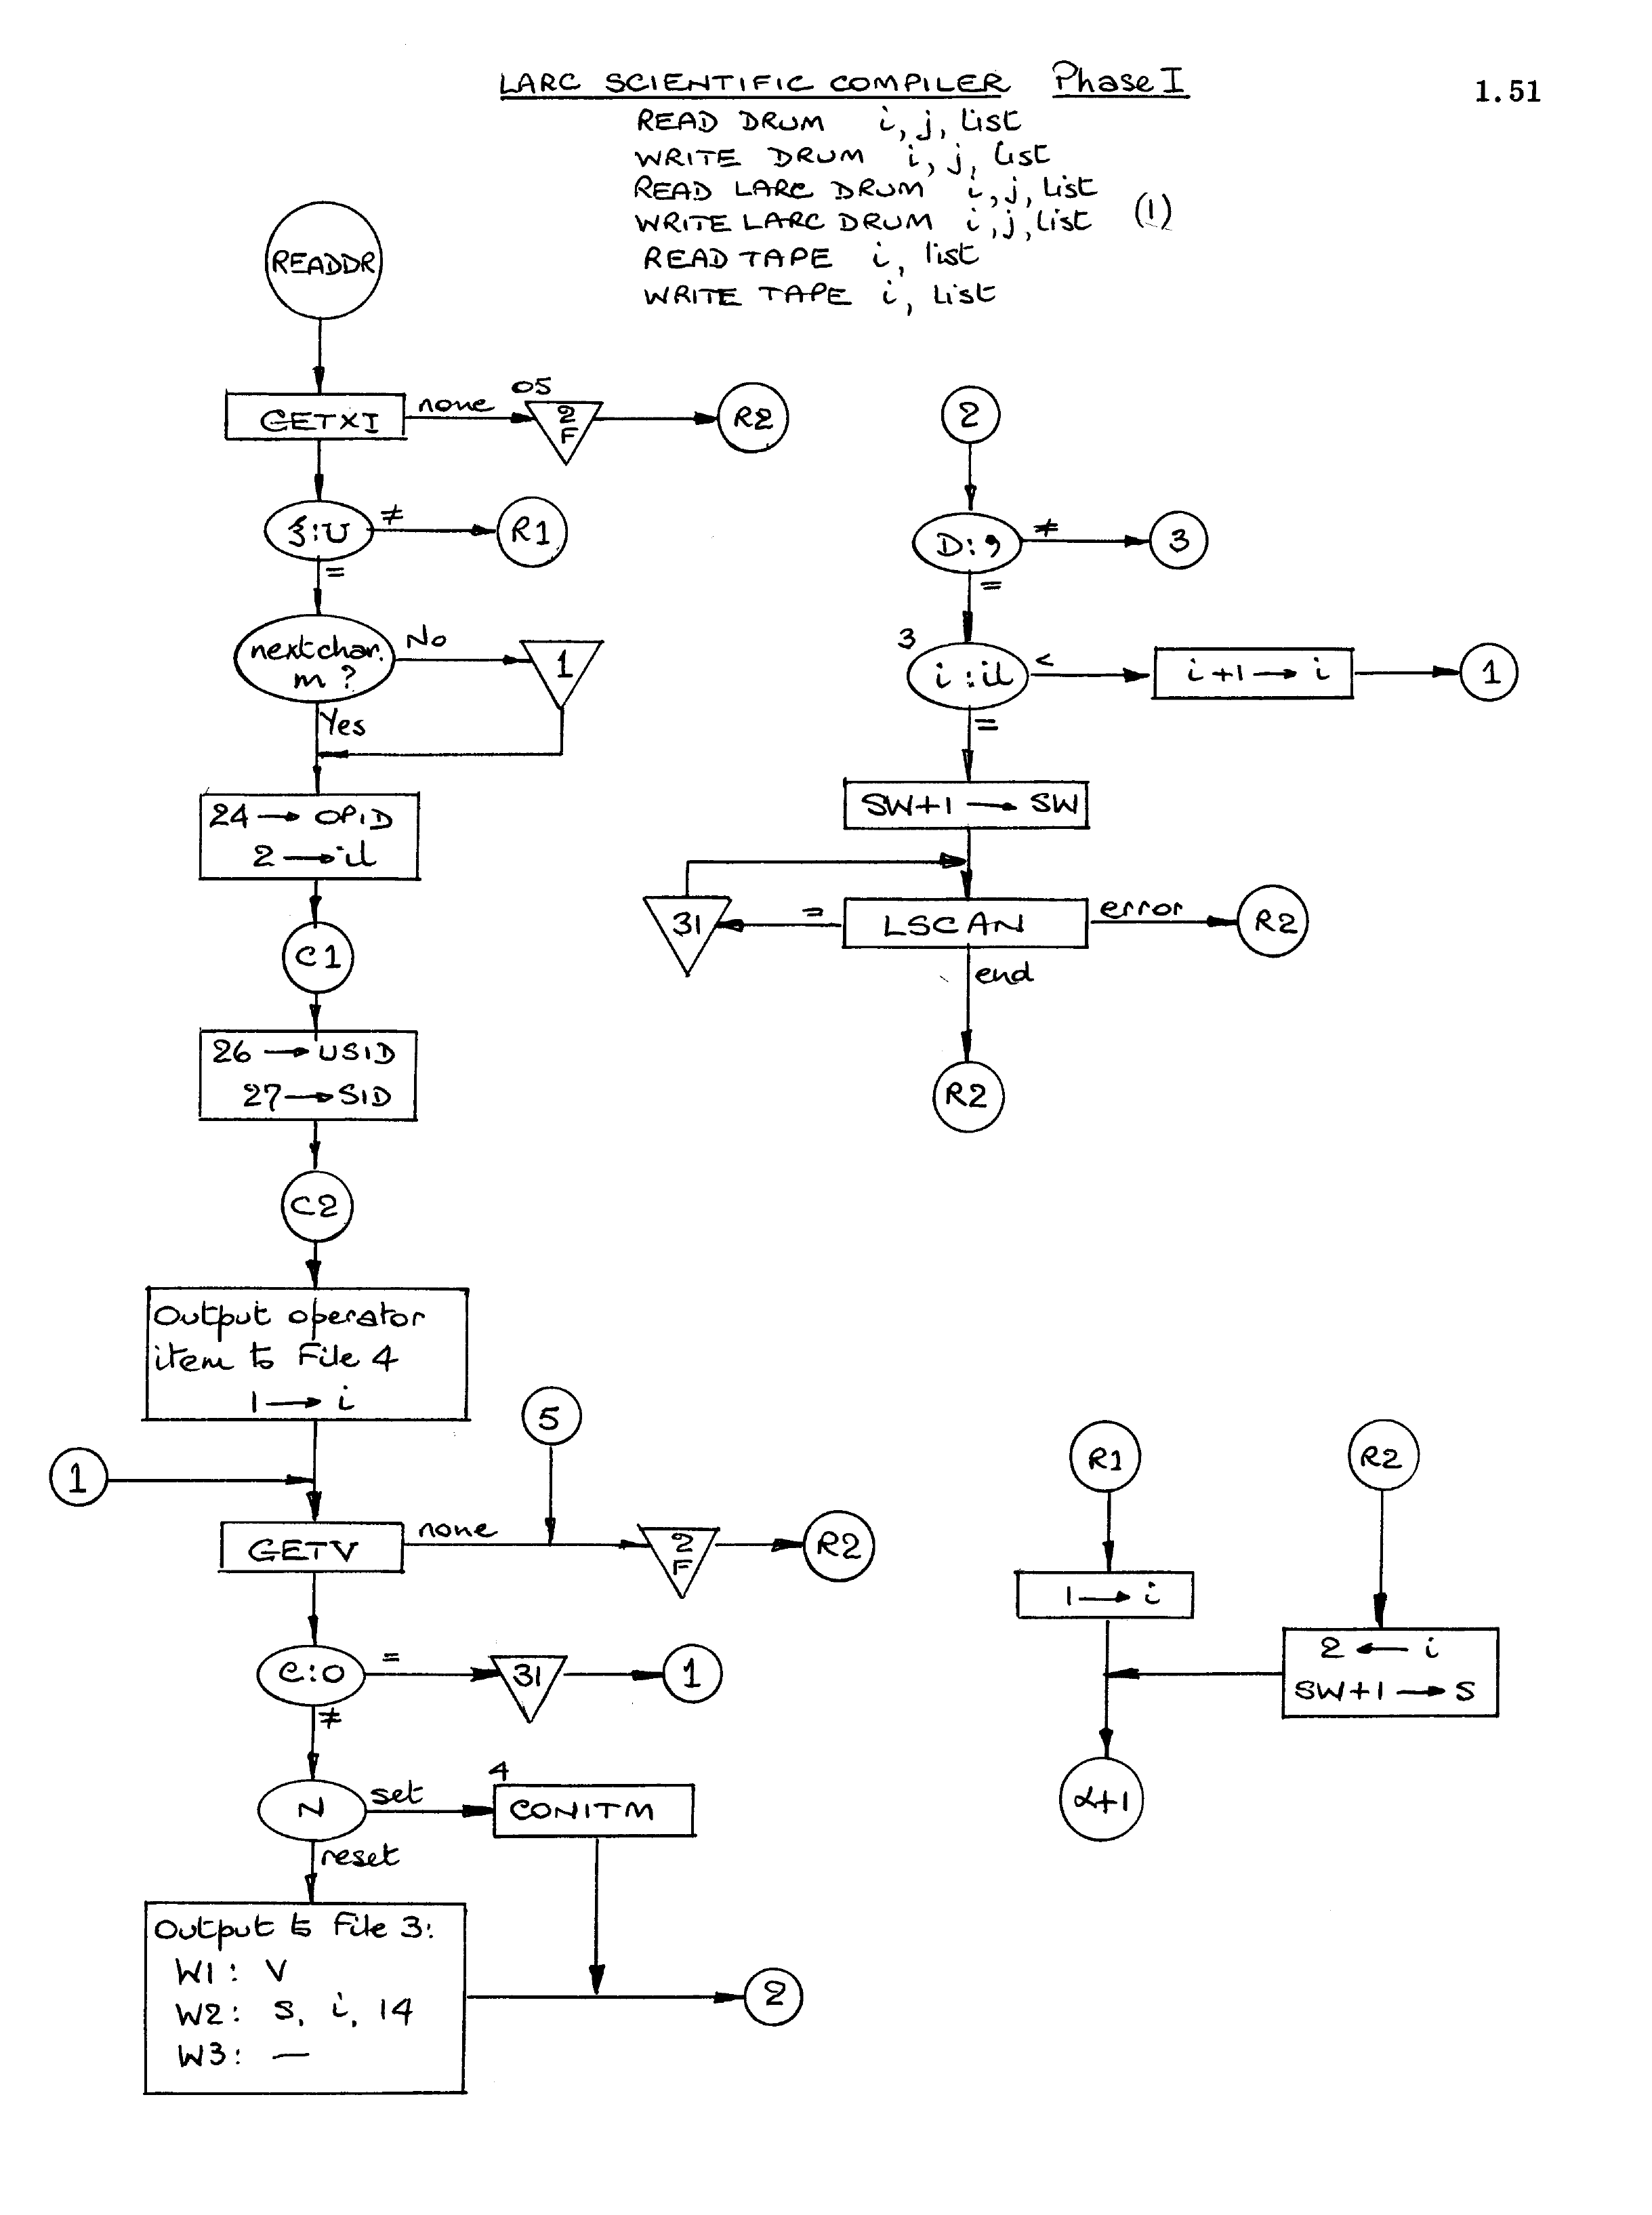 LARC SCIENTIFIC COMPILER Phase I
1.51
READ DRUM i, j, list
WRITE DRUM i, j, list
READ LARC DRUM i, j, list
WRITE LARC DRUM i, j, list (1)
READ TAPE i, list
WRITE TAPE i, list
READDR
GETXI
none
05
2
F
R2
ξ:U
≠
R1
=
next char.
m ?
No
1
Yes
24 → OPID
2 → il
C1
26 → USID
27 → SID
C2
Output operator
item to File 4
1 → i
1
5
GETV
none
2
F
R2
C:0
=
31
1
≠
N
set
4
CONITM
reset
Output to File 3:
W1: V
W2: S, i, 14
W3: —
2
2
D: ,
≠
3
=
3
i : il
<
i+1 → i
1
=
SW+1 → SW
31
=
LSCAN
error
R2
end
R2
R1
R2
1 → i
2 ← i
SW+1 → S
α+1